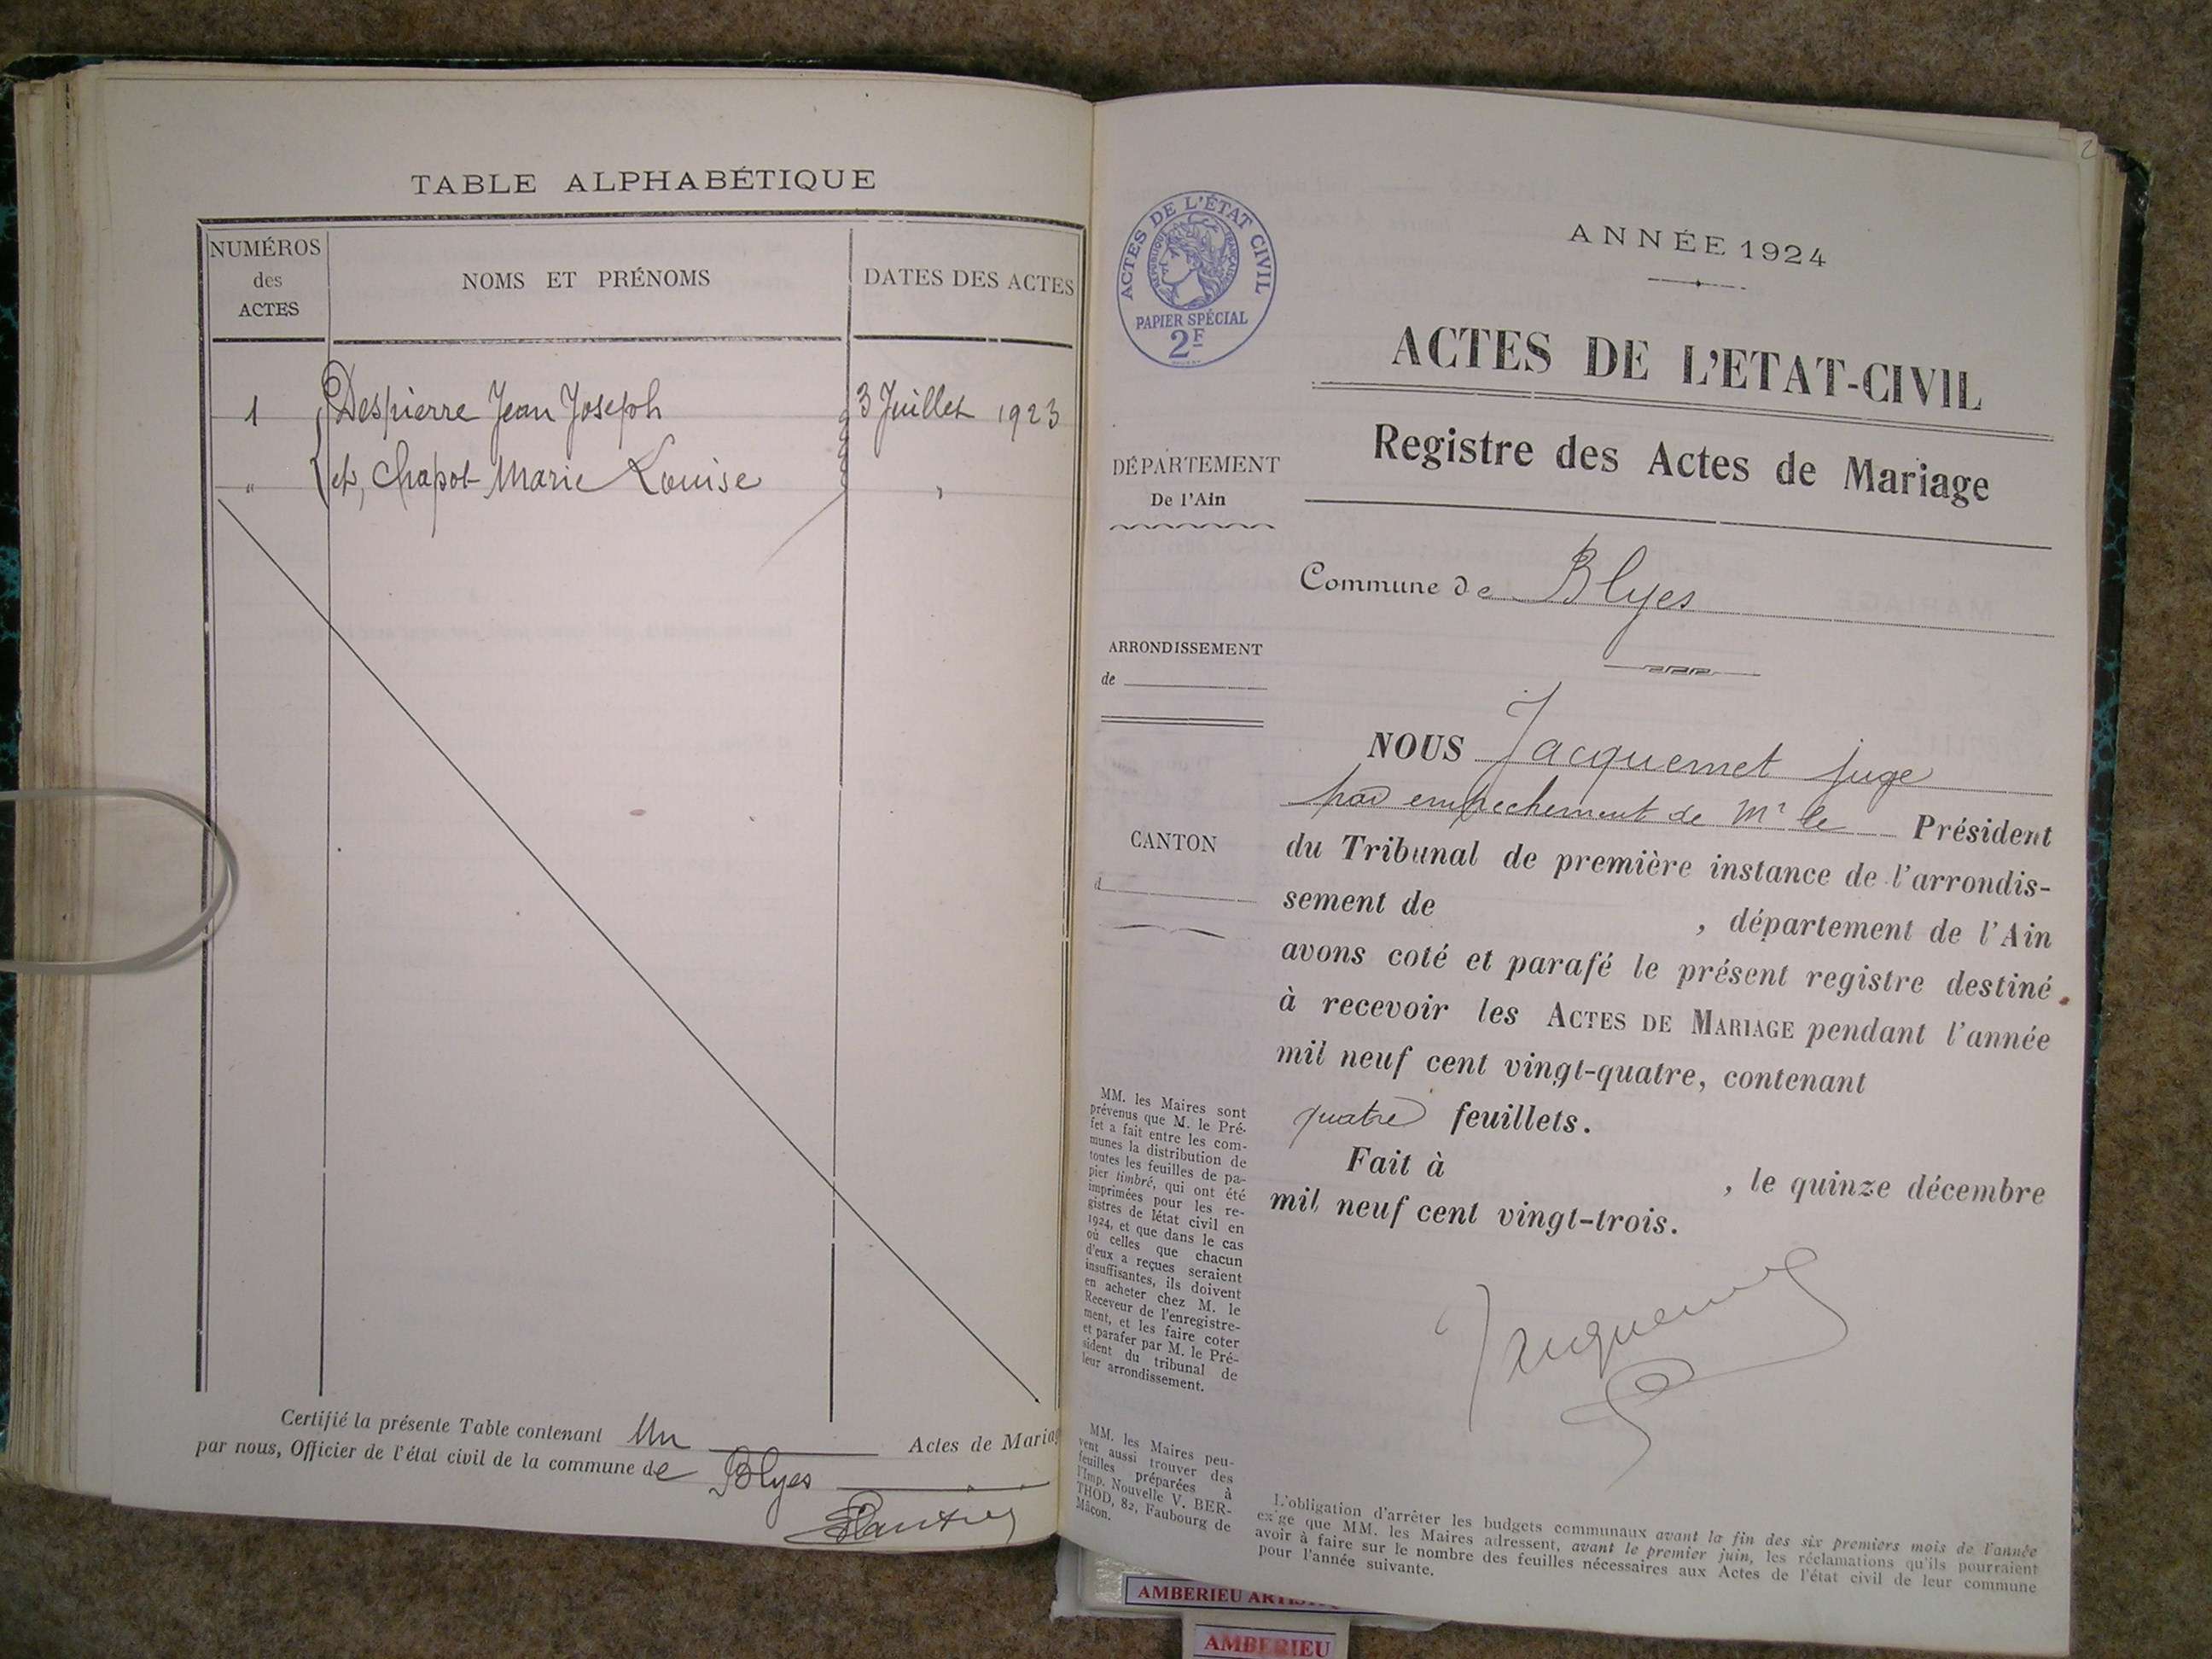 TABLE ALPHABÉTIQUE
NUMÉROS
des
ACTES
NOMS ET PRÉNOMS
DATES DES ACTES
1 Despierre Jean Joseph 3 Juillet 1923
" et, Chapot Marie Louise "
Certifié la présente Table contenant Un Actes de Mariag
par nous, Officier de l'état civil de la commune de Blyes
ACTES DE L'ÉTAT CIVIL
RÉPUBLIQUE FRANÇAISE
PAPIER SPÉCIAL
2F
ANNÉE 1924
ACTES DE L'ETAT-CIVIL
Registre des Actes de Mariage
DÉPARTEMENT
De l'Ain
Commune de Blyes
ARRONDISSEMENT
de
CANTON
d
NOUS Jacquemet juge
par empechement de Mr le Président
du Tribunal de première instance de l'arrondis-
sement de , département de l'Ain
avons coté et parafé le présent registre destiné
à recevoir les ACTES DE MARIAGE pendant l'année
mil neuf cent vingt-quatre, contenant
quatre feuillets.
Fait à , le quinze décembre
mil neuf cent vingt-trois.
Jacquemet
MM. les Maires sont
prévenus que M. le Pré-
fet a fait entre les com-
munes la distribution de
toutes les feuilles de pa-
pier timbré, qui ont été
imprimées pour les re-
gistres de létat civil en
1924, et que dans le cas
où celles que chacun
d'eux a reçues seraient
insuffisantes, ils doivent
en acheter chez M. le
Receveur de l'enregistre-
ment, et les faire coter
et parafer par M. le Pré-
sident du tribunal de
leur arrondissement.
MM. les Maires peu-
vent aussi trouver des
feuilles préparées à
l'Imp. Nouvelle V. BER-
THOD, 82, Faubourg de
Mâcon.
L'obligation d'arrêter les budgets communaux avant la fin des six premiers mois de l'année
exige que MM. les Maires adressent, avant le premier juin, les réclamations qu'ils pourraient
avoir à faire sur le nombre des feuilles nécessaires aux Actes de l'état civil de leur commune
pour l'année suivante.
AMBERIEU
AMBERIEU